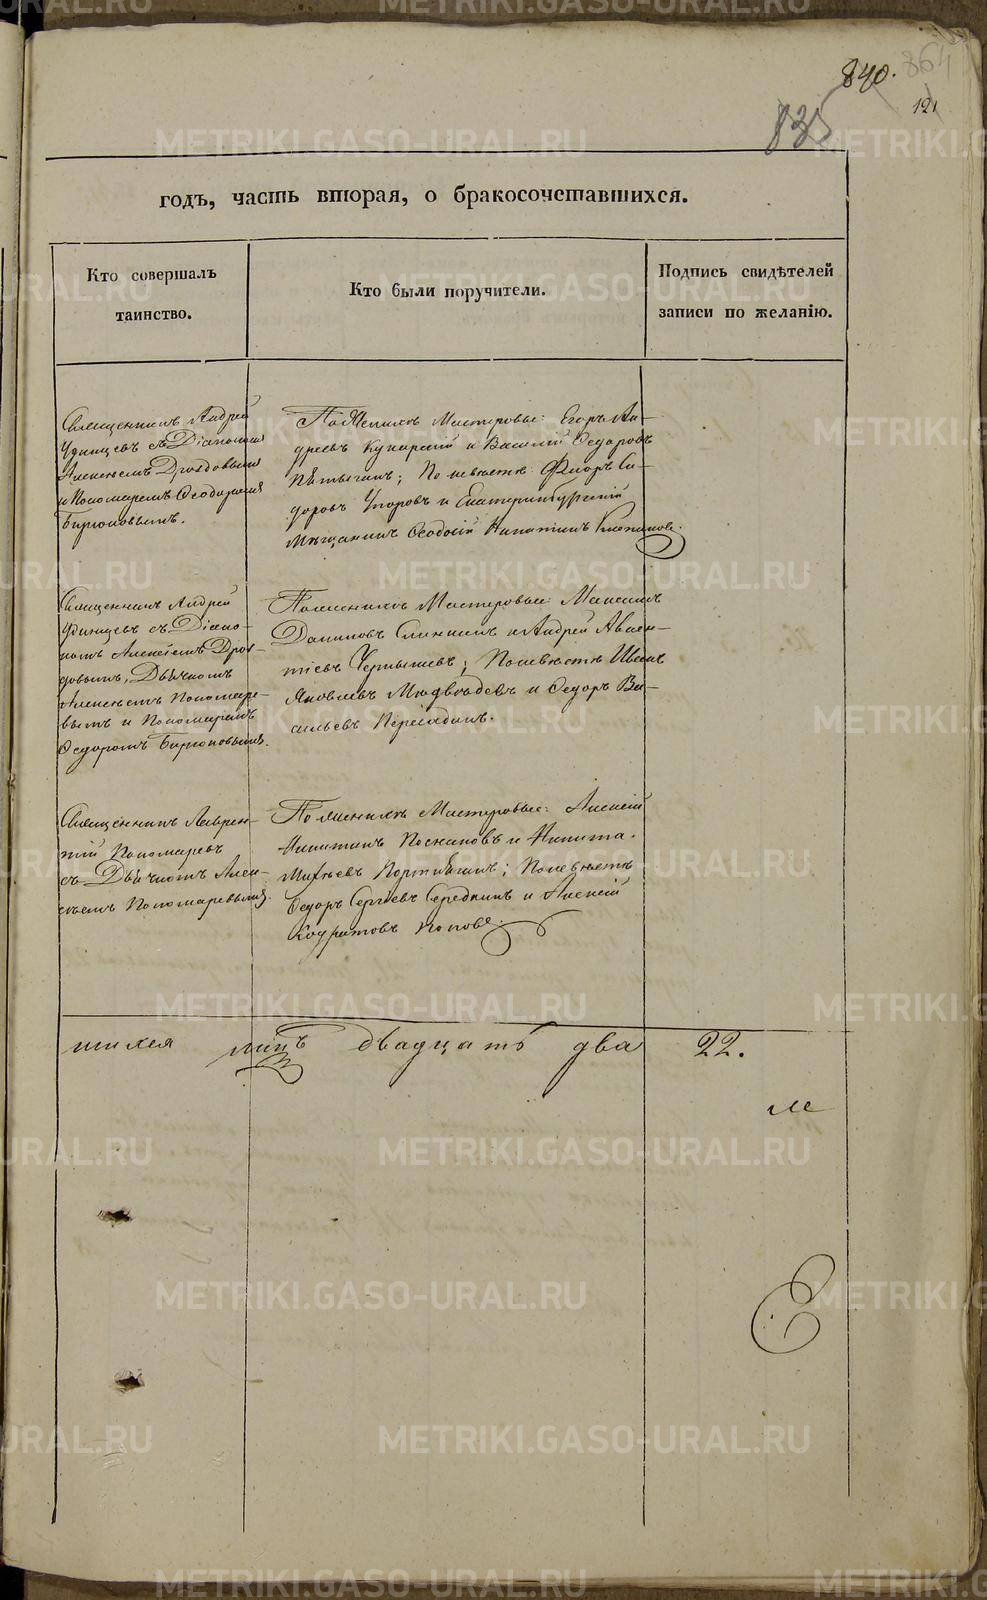 840.
864
835
121
годъ, часть вторая, о бракосочетавшихся.
Кто совершалъ
таинство.
Кто были поручители.
Подпись свидѣтелей
записи по желанію.
Священникъ Андрей
съ Діакономъ
Алексѣемъ Дроздовымъ
и Пономаремъ Ѳеодоромъ
Бирюковымъ.
По Женихѣ Мастеровые: Егоръ Ан-
дреевъ и Василій Ѳедоровъ
По невѣстѣ: Си-
доровъ и Екатеринбургскій
Мѣщанинъ Ѳеодосій Никитинъ
Священникъ Андрей
съ Діако-
номъ Алексѣемъ Дроз-
довымъ, Дьячкомъ
Алексѣемъ Пономаре-
вымъ и Пономаремъ
Ѳедоромъ Бирюковымъ.
По женихѣ Мастеровые: Максимъ
Даниловъ и Андрей Авксен-
тіевъ Чернышевъ; По невѣстѣ Иванъ
Яковлевъ Медвѣдевъ и Ѳедоръ Ва-
сильевъ
Священникъ Лаврен-
тій Пономаревъ
съ Дьячкомъ Алек-
сѣемъ Пономаревымъ.
По женихѣ Мастеровые: Алексѣй
Никитинъ и Никита
Михѣевъ Портнягинъ; По невѣстѣ
Ѳедоръ Сергѣевъ Середкинъ и Алексѣй
Кодратовъ Поповъ.
шихся двадцать два 22.
METRIKI.GASO-URAL.RU